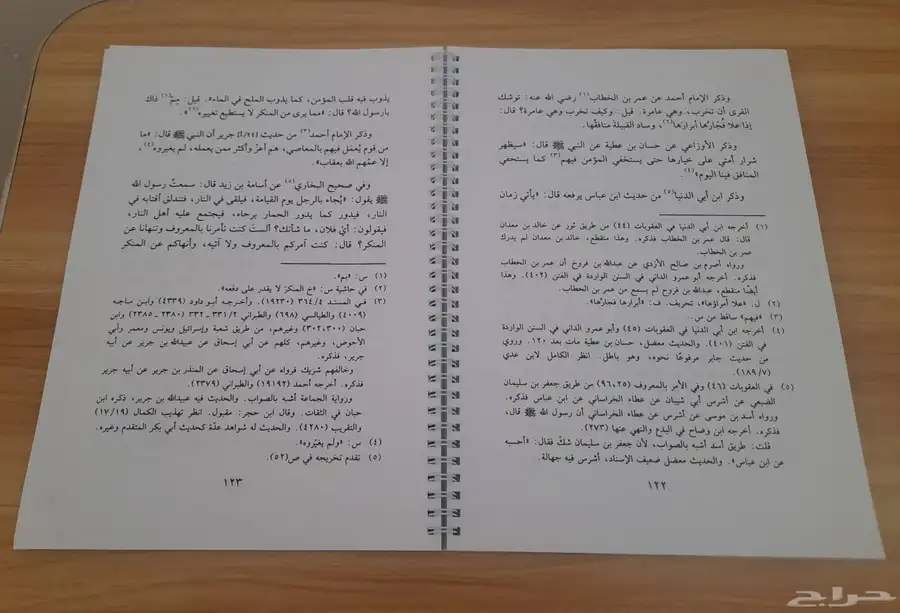 وذكر الإمام أحمد عن عمر بن الخطاب(١) رضي الله عنه: توشك
القرى أن تخرب، وهي عامرة. قيل: وكيف تخرب وهي عامرة؟ قال:
إذا علا فُجّارُها أبرارَها(٢)، وساد القبيلة منافقُها.
وذكر الأوزاعي عن حسان بن عطية عن النبي ﷺ قال: «سيظهر
شرار أمتي على خيارها حتى يستخفي المؤمن فيهم(٣) كما يستخفي
المنافق فينا اليوم»(٤).
وذكر ابن أبي الدنيا(٥) من حديث ابن عباس يرفعه قال: «يأتي زمان
(١) أخرجه ابن أبي الدنيا في العقوبات (٤٤) من طريق ثور عن خالد بن معدان
قال: قال عمر بن الخطاب فذكره. وهذا منقطع، خالد بن معدان لم يدرك
عمر بن الخطاب.
ورواه أصرم بن صالح الأزدي عن عبدالله بن فروخ أن عمر بن الخطاب
فذكره. أخرجه أبو عمرو الداني في السنن الواردة في الفتن (٤٠٢). وهذا
أيضًا منقطع، عبدالله بن فروخ لم يسمع من عمر بن الخطاب.
(٢) ل: «علا أمراؤها»، تحريف. ف: «أبرارها فجارها».
(٣) «فيهم» ساقط من س.
(٤) أخرجه ابن أبي الدنيا في العقوبات (٤٥) وأبو عمرو الداني في السنن الواردة
في الفتن (٤٠١). والحديث معضل، حسان بن عطية مات بعد ١٢٠. وروي
من حديث جابر مرفوعًا نحوه، وهو باطل. انظر الكامل لابن عدي
(٧/ ١٨٩).
(٥) في العقوبات (٤٦) وفي الأمر بالمعروف (٢٥، ٩٦) من طريق جعفر بن سليمان
الضبعي عن أشرس أبي شيبان عن عطاء الخراساني عن ابن عباس فذكره.
ورواه أسد بن موسى عن أشرس عن عطاء الخراساني أن رسول الله ﷺ قال،
فذكره. أخرجه ابن وضاح في البدع والنهي عنها (٢٧٣).
قلت: طريق أسد أشبه بالصواب، لأن جعفر بن سليمان شكّ فقال: «أحسبه
عن ابن عباس». والحديث معضل ضعيف الإسناد، أشرس فيه جهالة.
١٢٢
يذوب فيه قلب المؤمن، كما يذوب الملح في الماء». قيل: مِمَّ(١) ذاك
يارسول الله؟ قال: «مما يرى من المنكر لا يستطيع تغييره»(٢).
وذكر الإمام أحمد(٣) من حديث [٢٦/أ] جرير أن النبي ﷺ قال: «ما
من قوم يُعمَل فيهم بالمعاصي، هم أعزّ وأكثر ممن يعمله، لم يغيروه(٤)،
إلا عمّهم الله بعقاب».
وفي صحيح البخاري(٥) عن أسامة بن زيد قال: سمعتُ رسول الله
ﷺ يقول: «يُجاء بالرجل يوم القيامة، فيلقى في النار، فتندلق أقتابه في
النار، فيدور كما يدور الحمار برحاه، فيجتمع عليه أهل النار،
فيقولون: أيْ فلان، ما شأنك؟ ألستَ كنت تأمرنا بالمعروف وتنهانا عن
المنكر؟ قال: كنت آمركم بالمعروف ولا آتيه، وأنهاكم عن المنكر
(١) س: «بم».
(٢) في حاشية س: «خ المنكر، لا يقدر على دفعه».
(٣) في المسند ٤/ ٣٦٤ (١٩٢٣٠). وأخرجه أبو داود (٤٣٣٩) وابن ماجه
(٤٠٠٩) والطيالسي (٦٩٨) والطبراني ٢/ ٣٣١ - ٣٣٢ (٢٣٨٠ - ٢٣٨٥) وابن
حبان (٣٠٠، ٣٠٢) وغيرهم، من طريق شعبة وإسرائيل ويونس ومعمر وأبي
الأحوص، وغيرهم، كلهم عن أبي إسحاق عن عبيدالله بن جرير عن أبيه
جرير، فذكره.
وخالفهم شريك فرواه عن أبي إسحاق عن المنذر بن جرير عن أبيه جرير
فذكره. أخرجه أحمد (١٩١٩٢) والطبراني (٢٣٧٩).
ورواية الجماعة أشبه بالصواب. والحديث فيه عبيدالله بن جرير، ذكره ابن
حبان في الثقات. وقال ابن حجر: مقبول. انظر تهذيب الكمال (١٩/ ١٧)
والتقريب (٤٢٨٠). والحديث له شواهد عدّة كحديث أبي بكر المتقدم وغيره.
(٤) س: «ولم يغيّروه».
(٥) تقدم تخريجه في ص(٥٢).
١٢٣
حراج